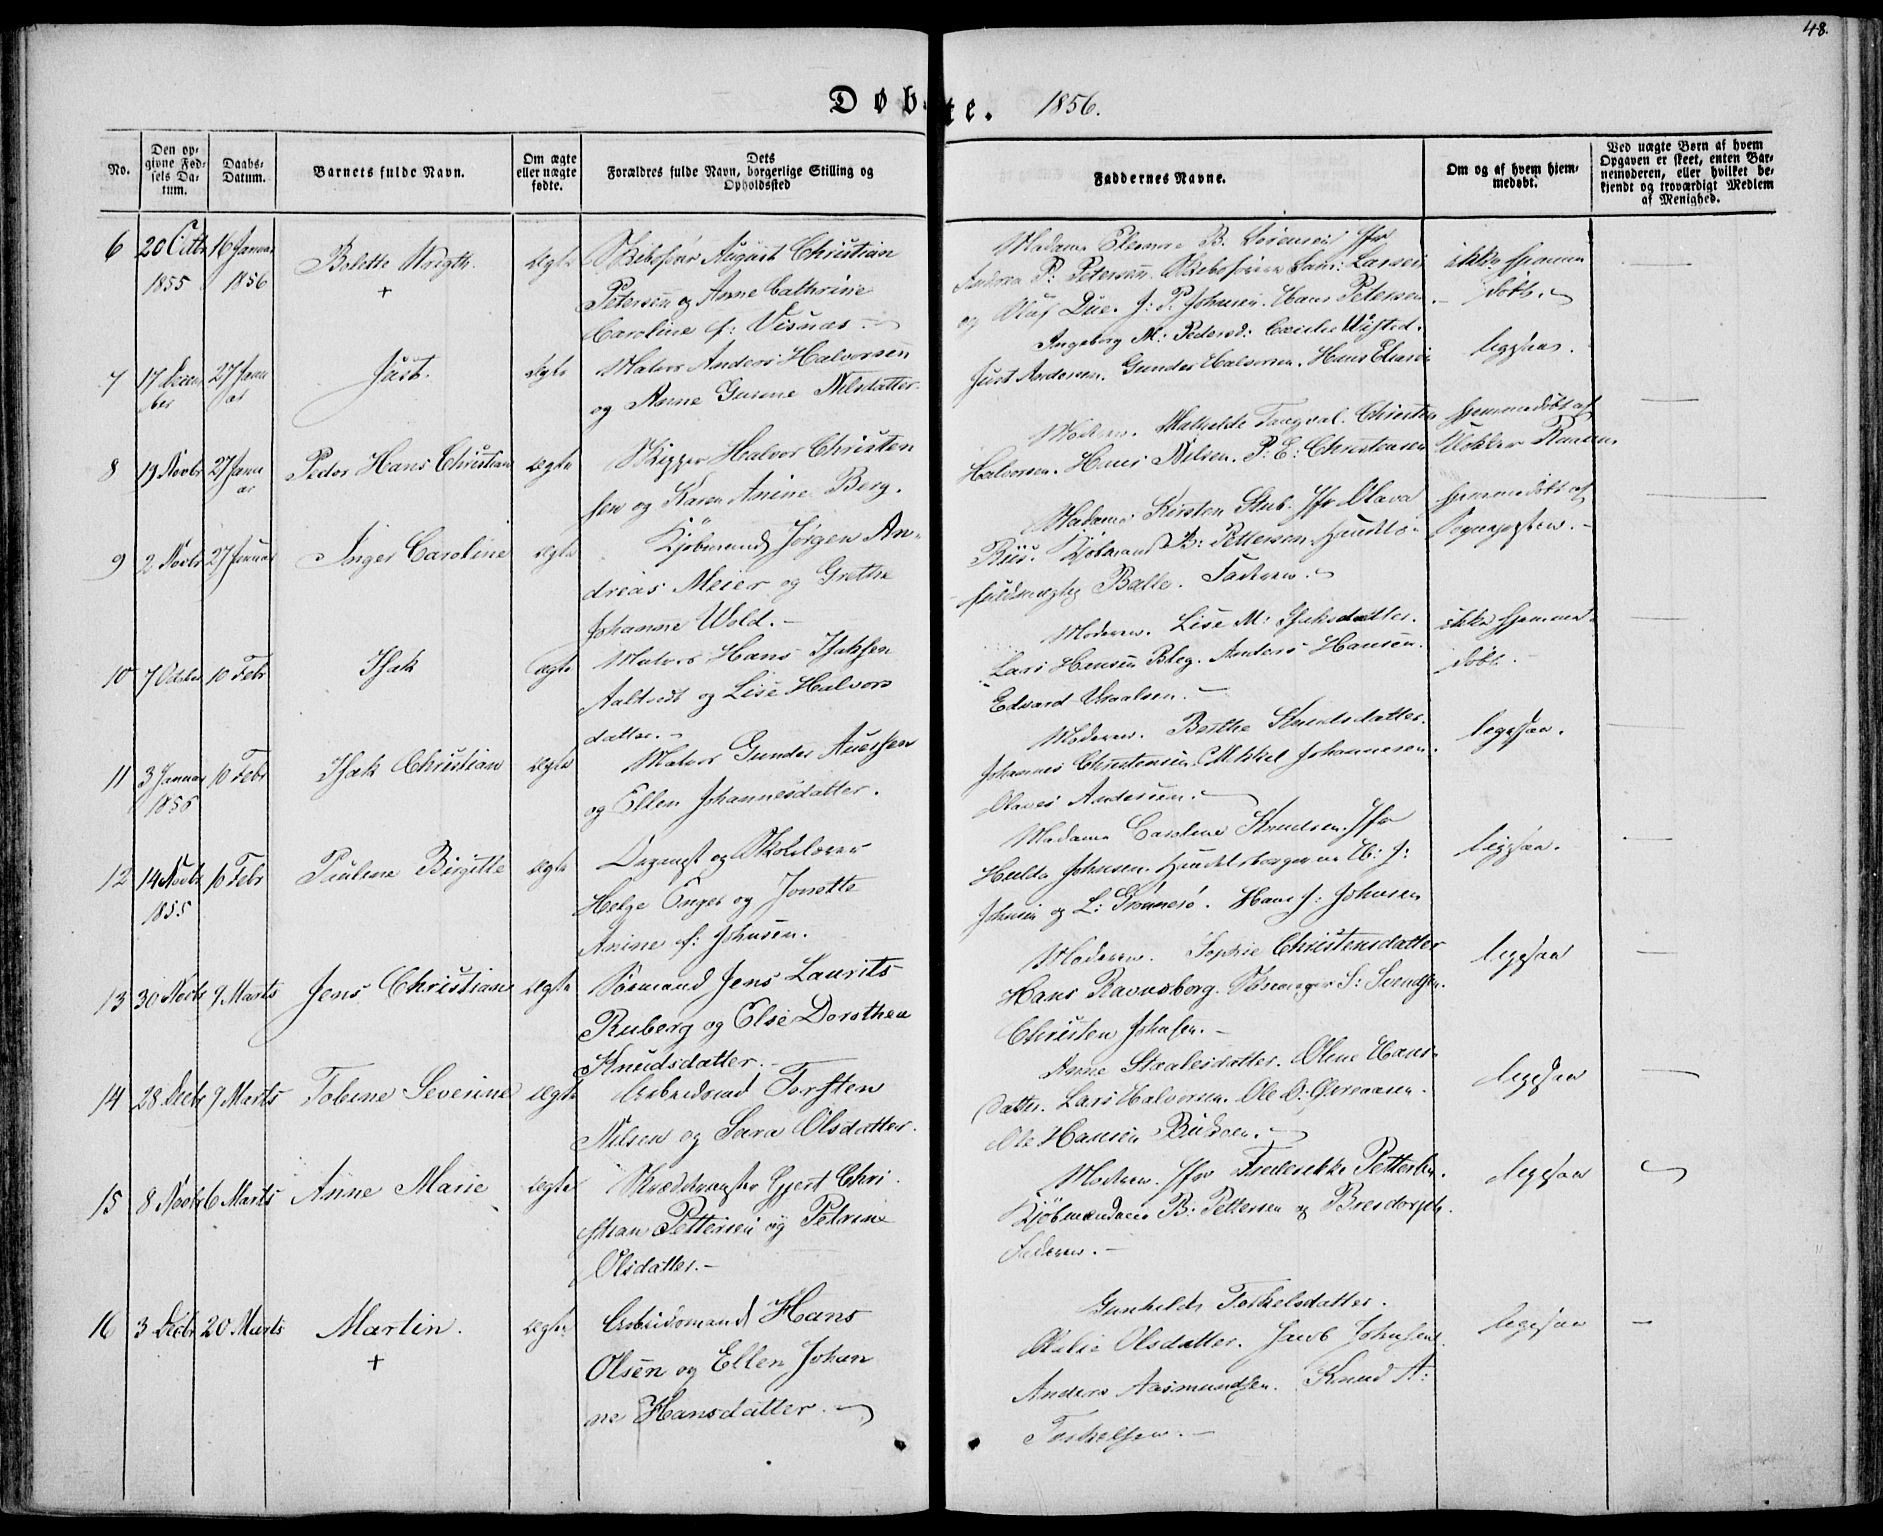 48.
Døbte. 1856.
No.
Den opgivne Fødsels Datum.
Daabs-Datum.
Barnets fulde Navn.
Om ægte eller uægte fødte.
Forældres fulde Navn, Dets borgerlige Stilling og Opholdssted
Faddernes Navne.
Om og af hvem hjemmedøbt.
Ved uægte Børn af hvem Opgaven er skeet, enten Barnemoderen, eller hvilket bekjendt og troværdigt Medlem af Menighed.
6 20 1855 16 Januar 1856
Bolette Wrigth.
+
ægte
August Christian
Petersen og Anne Cathrine
Caroline f: Visnæs
Madame B. Sørensen Jfr
P: Petersen. Larsen
og Oluf Due. J: P. Johnsen. Hans Petersen.
ikke hjemme
døbt.
7 17 Decem
ber
27 Janu
ar
Just.
ægte
Matros Anders Halvorsen
og Anne Gurine Nilsdatter
Ingeborg M: Pedersd:
Just Andersen. Gunder Halvorsen. Hans
ligesaa.
8 19 Novbr 27 Janu
ar
Peder Hans Christian
ægte
Skipper Halvor Christen
sen og Karen Anine Berg.
Moderen. Mathilde
Halvorsen. Hans Nilsen. P. E: Christensen
hjemmedøbt af
Klokker
9 2 Novbr 27 Januar
Inger Caroline
ægte
Kjøbmand Jørgen An-
dreas Meier og Grethe
Johanne Wold.-
Madame Kirsten Stub. Jfr Olava
Riis. Kjøbmand B: Pettersen. Handels
fuldmægtig Balle. Faderen.
hjemmedøbt af
Sognepræsten.-
10 7 10 Febr
Isak
ægte
Matros Hans Isaksen
og Lise Halvors
datter.
Moderen. Lise M: Isaksdatter.
Lars Hansen Bleg. Anders Hansen.
Edvard
ikke hjemme
døbt.-
11 3 Januar 10 Febr
Isak Christian
ægte
Matros Gunder
og Ellen Johannesdatter.
Moderen. Berthe Knudsdatter.
Johannes Christensen. Mikkel Johannesen.
Olaves Andersen.
ligesaa.
12 14 Novbr 1855 10 Febr
Pauline Birgitte
ægte
Organist og Skolelærer
Helge Enger og Jonette
Anine f: Johnsen.
Madame Caroline Knudsen. Jfr
Hulda Johnsen. Handelsborgerne
Johnsen og L: Grønnesø. Hans J: Johnsen
ligesaa.
13 30 Novbr 9 Marts
Jens Christian
ægte
Sømand Jens Laurits
Ruberg og Else Dorothea
Knudsdatter.-
Moderen. Sophie Christensdatter
Hans Ravnsborg. S: Svendsen.
Christen Johnsen.-
ligesaa
14 28 Decbr 9 Marts
Tobine Severine
ægte
Arbeidsmand Torsten
Nilsen og Sara Olsdatter.
Anne Staalesdatter. Oline Hans
datter. Lars Halvorsen. Ole O:
Ole Hansen
ligesaa
15 8 Novbr 6 Marts
Anne Marie
ægte
Skrædermester Gjert Chri
stian Pettersen og Petrine
Olsdatter.-
Moderen. Jfr Frederikke Pettersen.
Kjøbmændene B: Pettersen og
Faderen.-
ligesaa
16 3 Decbr 20 Marts
Martin.
+
ægte
Arbeidsmand Hans
Olsen og Ellen Johan
ne Hansdatter.
Gunhilde Torkelsdatter.
Olsdatter. Jacob Johnsen.
Anders Aasmundsen. Knud A:
Torkelsen.-
ligesaa